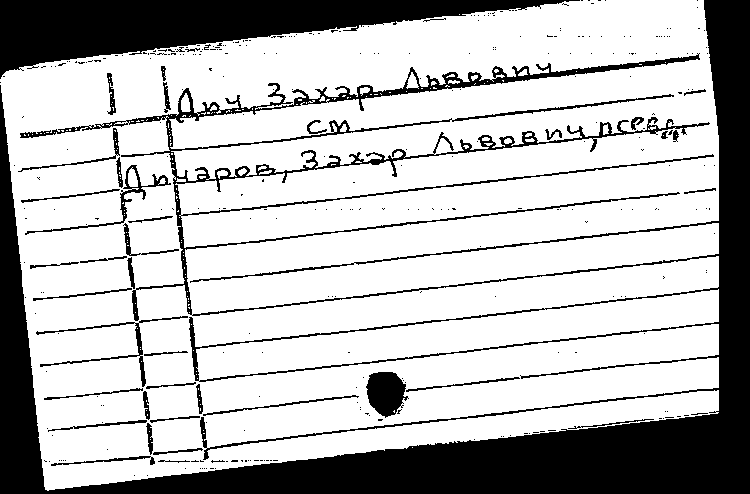 Дич, Захар Львович
см.
Дичаров, Захар Львович, псевд.